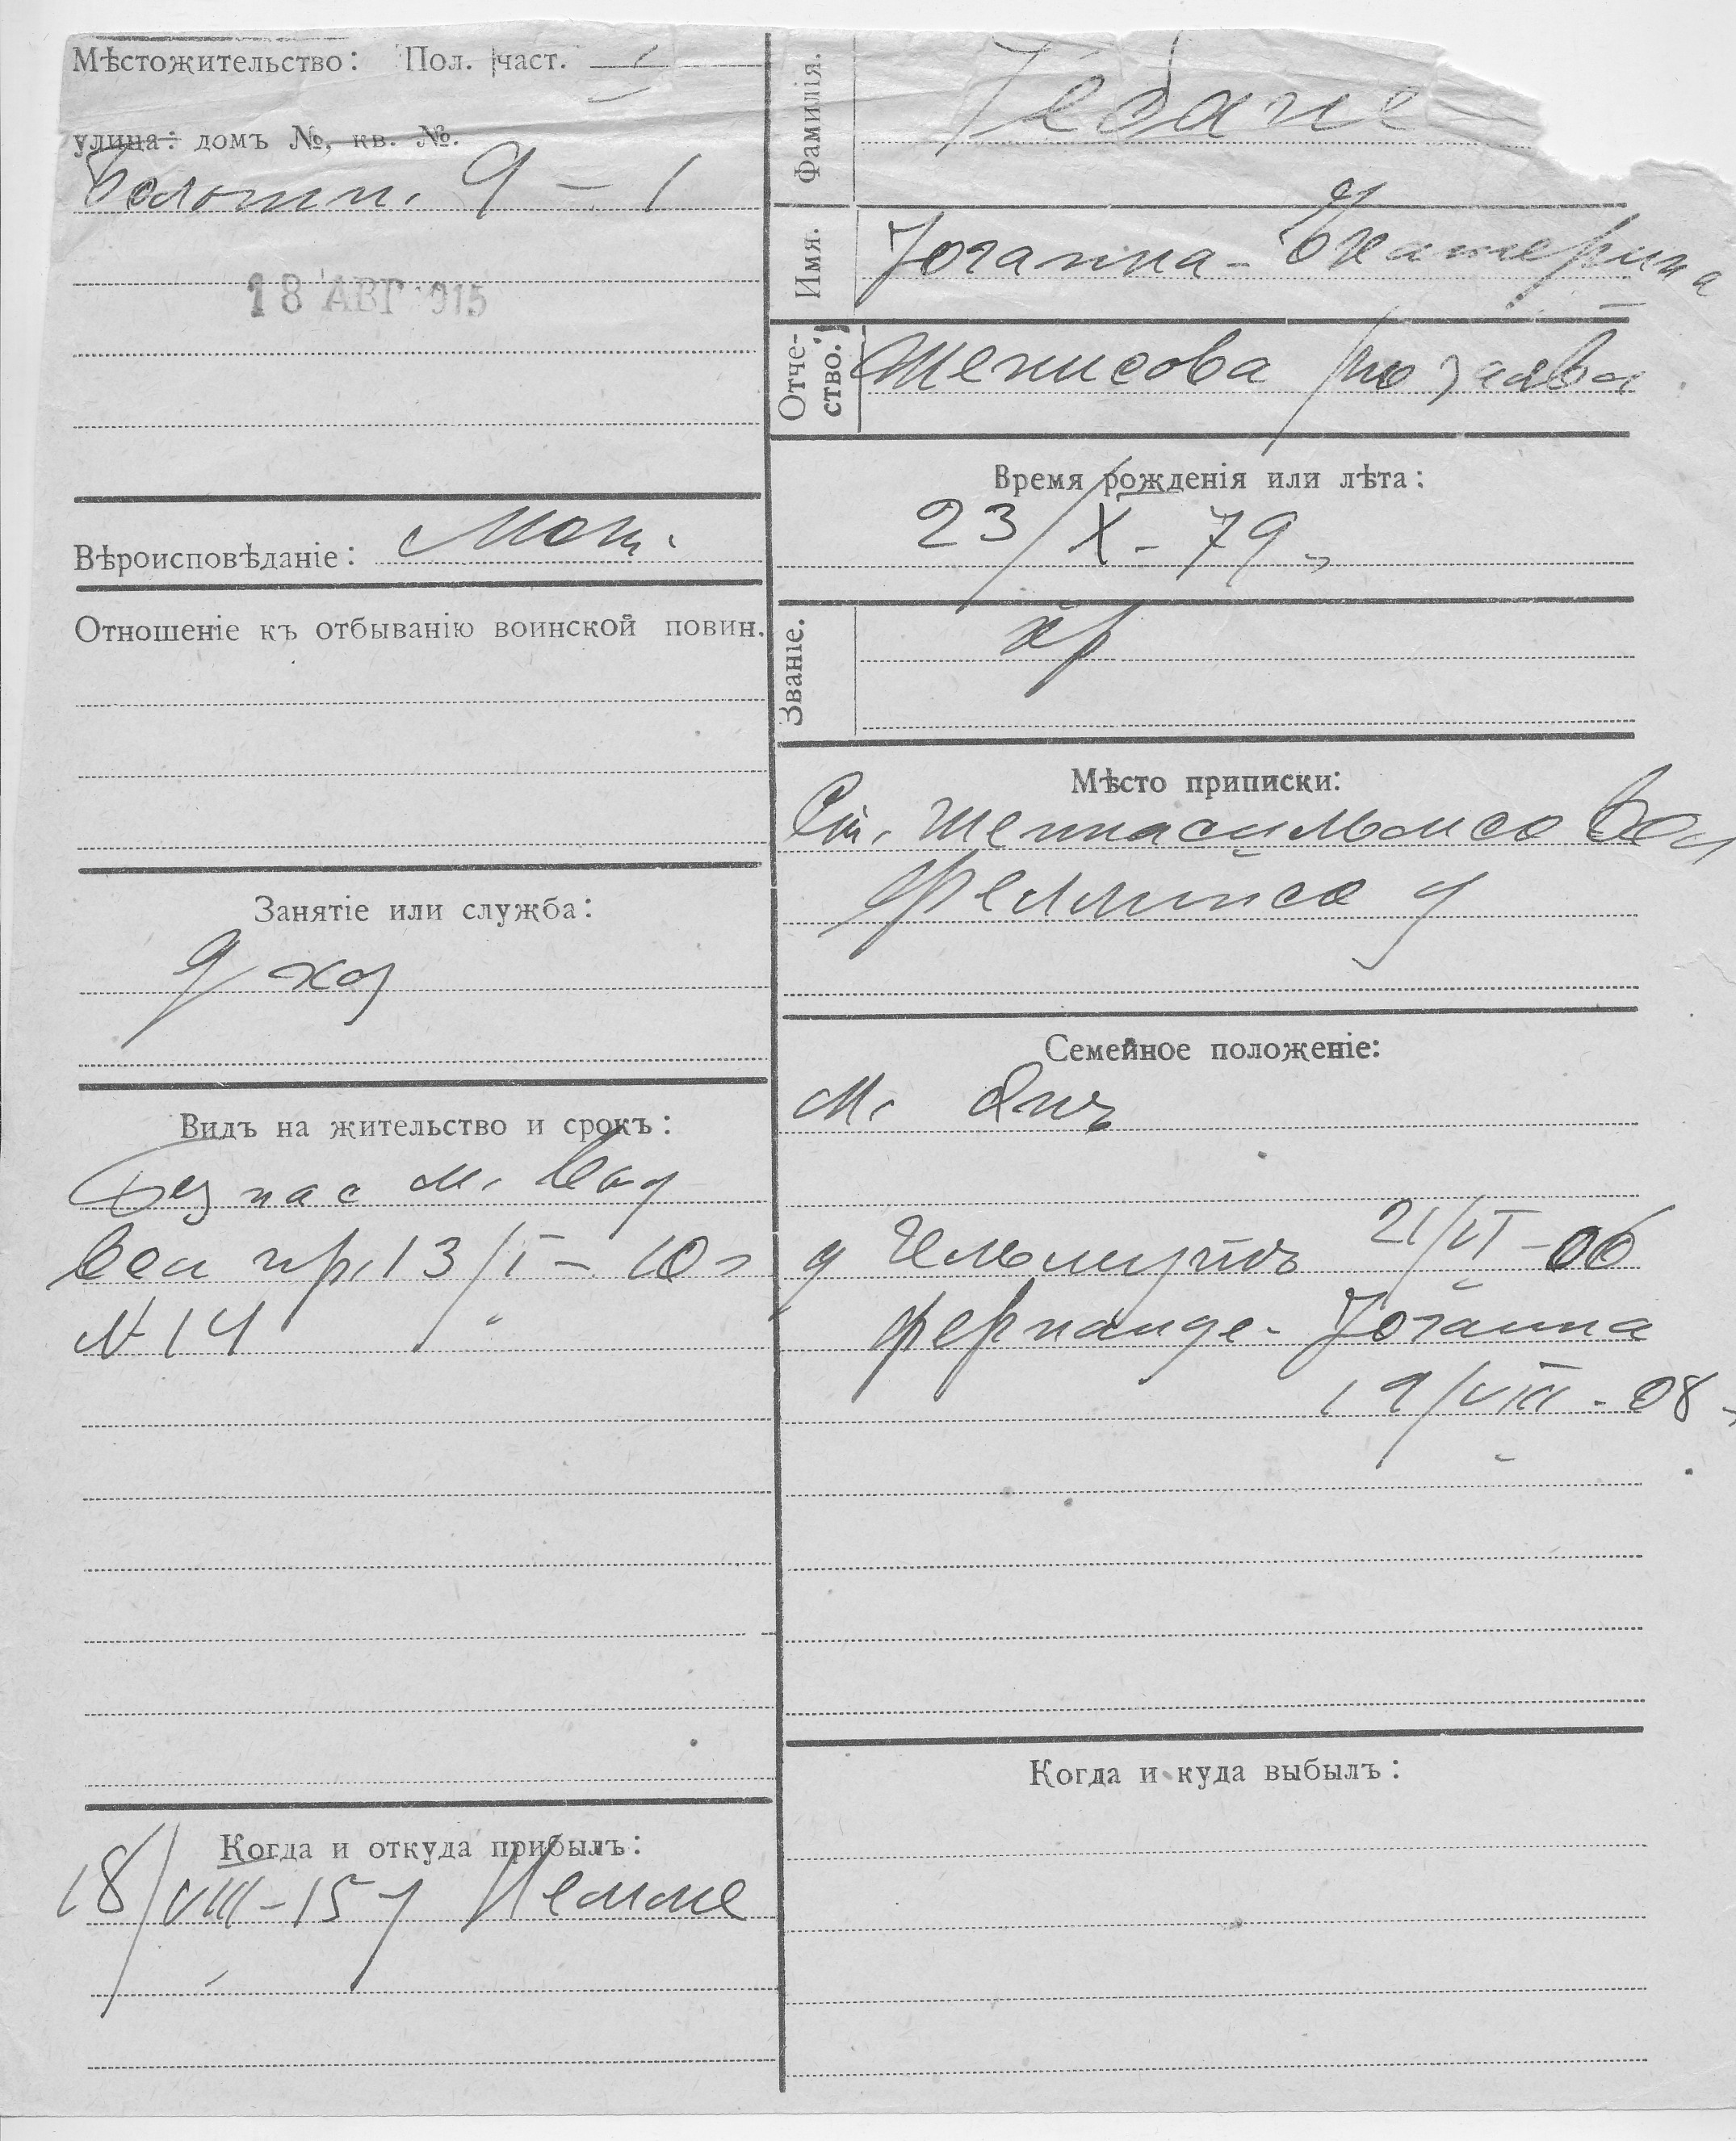 Мѣстожительство: Пол. част. 1
улица: домъ №, кв. №.
Болотн. 9 – 1
18 АВГ 915
Вѣроисповѣданіе: Лют.
Отношеніе къ отбыванію воинской повин.
Занятіе или служба:
д хоз
Видъ на жительство и срокъ:
Без пас м.
вол пр. 13/I – 10 г
№ 14
Когда и откуда прибылъ:
18/VIII – 15 г
Фамилія.
Имя.
Іоганна - Екатерина
Отчество.
Тенисова /по
Время рожденія или лѣта:
23/X - 79 г
Званіе.
кр
Мѣсто приписки:
Вол
Феллинск у
Семейное положеніе:
м. Янъ
д 21/VI – 06
Фернанде - Іоганна
19/VIII - 08 г
Когда и куда выбылъ: